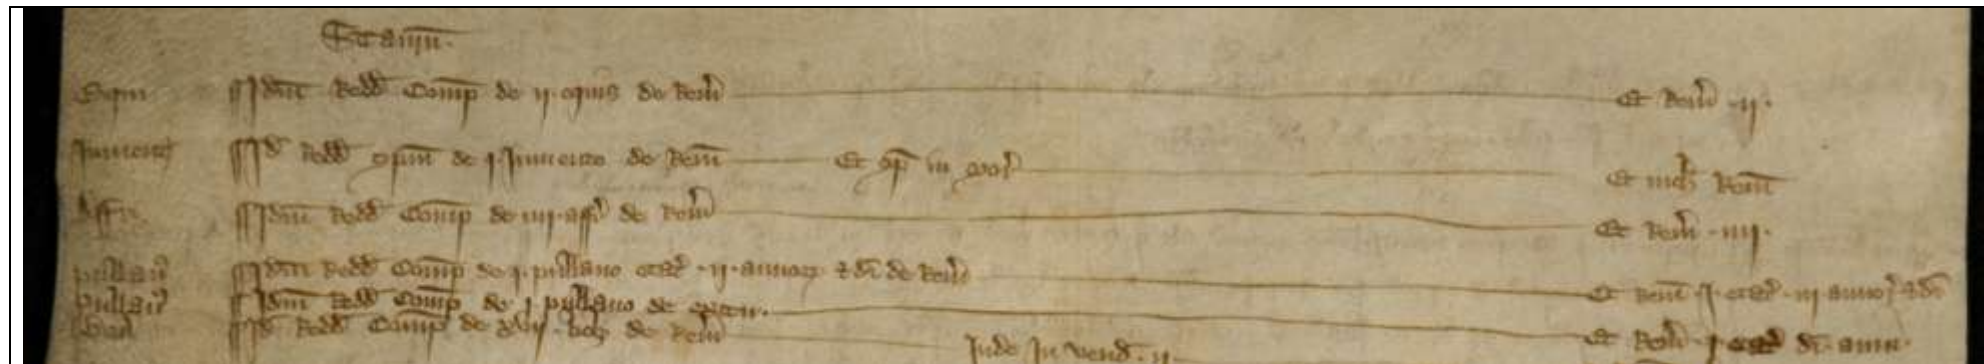 Staurū
Equi Idm̄ Redd Comp̄ de ij equis de Rem̄ Et Rem̄ ij
Iument Id Redd comp̄ de j Iumento de Rem̄ Et comp̄ in Et nich Rem̄
Affri Idm̄ Redd Comp̄ de iiij affr de Rem̄ Et Rem̄ iiij
pullan Idm̄ Redd Comp̄ de j pullano etat ij annoꝝ & di de Rem̄ Et Rem̄ j etat iij anno & di
pullan Idm̄ Redd Comp̄ de j pullano de exitu Et Rem̄ j etat di anni
Boū Id Redd Comp̄ de bob de Rem̄
Inde In vend ij